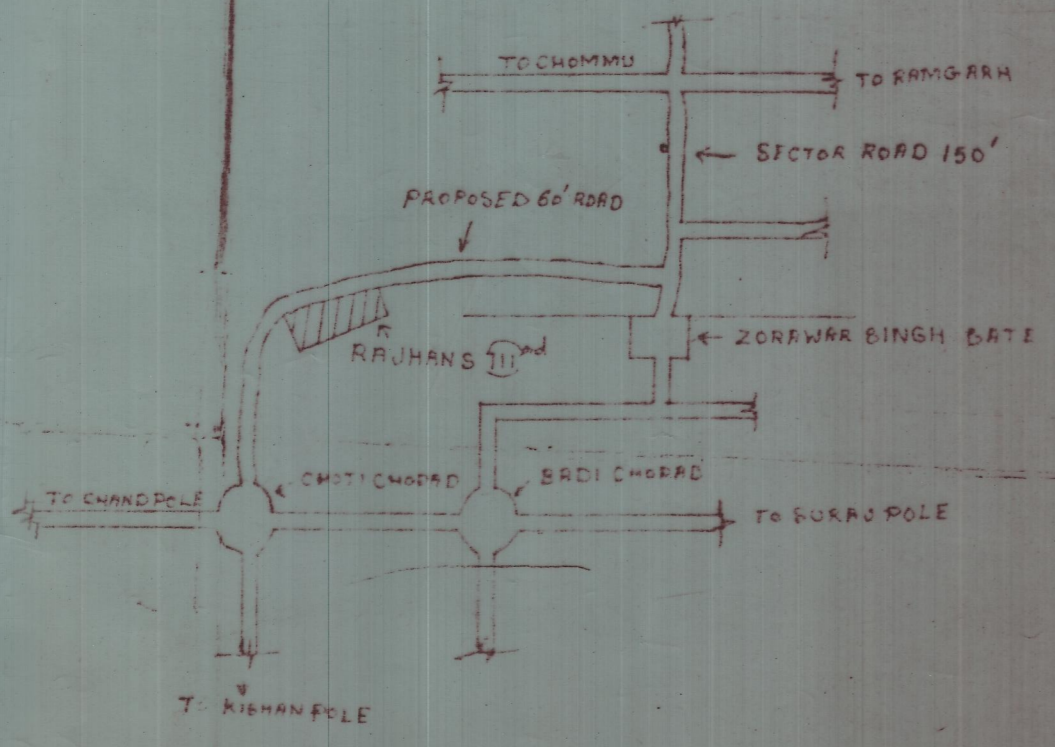 TO CHOMMU
TO RAMGARH
SECTOR ROAD 150'
PROPOSED 60' ROAD
ZORAWAR SINGH GATE
RAJHANS III nd
CHOTI CHOPAD
BADI CHOPAD
TO CHANDPOLE
TO SURAJ POLE
TO KISHAN POLE